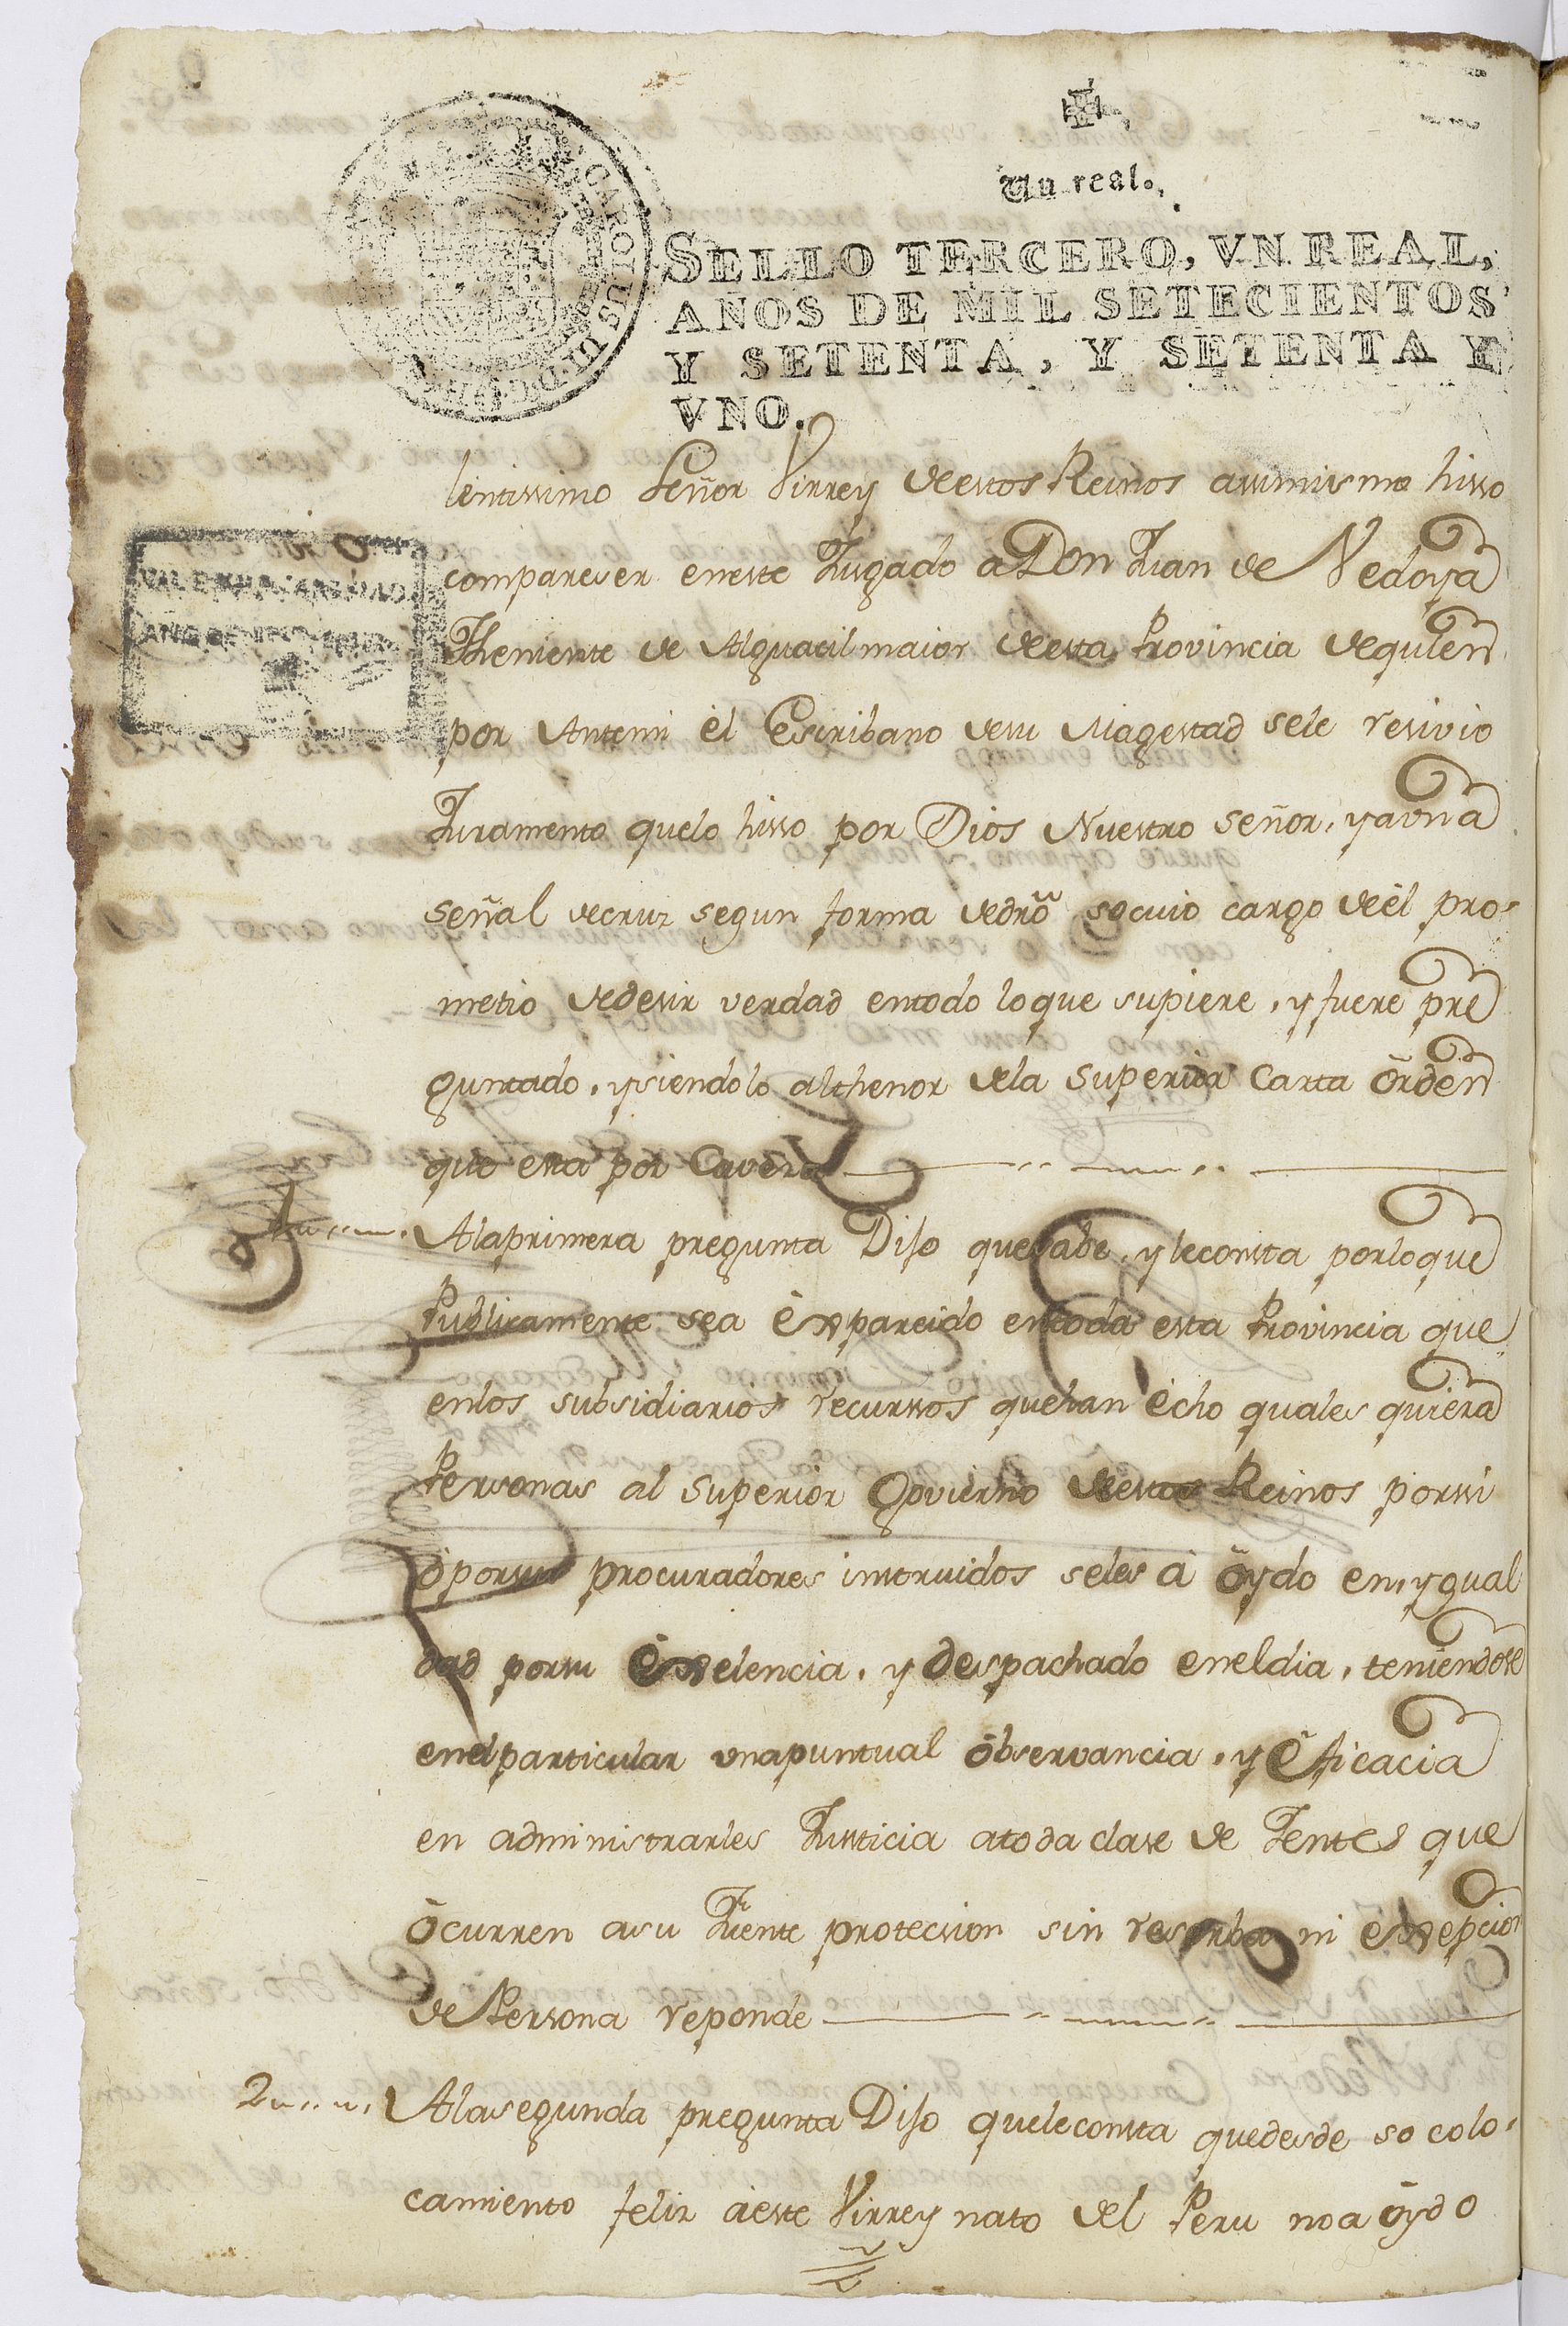 Un real.
SELLO TERCERO, VN REAL,
AÑOS DE MIL SETECIENTOS
Y SETENTA, Y SETENTA Y
VNO.
lentissimo Señor Virrey deestos Reinos assimismo hisso
compareser eneste Jusgado a Don Juan de Vedoya
Theniente de Alguacil maior deesta Provincia dequien
por Antemi èl Escribano desu Magestad sele resivio
Juramento quelo hisso por Dios Nuestro señor, y a vna
señal decruz segun forma dedrõ socuio cargo deèl pro-
metio dedesir verdad entodo loque supiere, y fuere pre
guntado, ysiendolo althenor dela Superior Carta òrden
que esta por Cavera
1 Alaprimera pregunta Dijo quesabe, yleconsta porloque
Publicamente sea èxparcido entoda esta Provincia que
enlos subsidiarios recurssos quehan ècho quales quiera
Personas al Superior Govierno deestos Reinos porssi
òporsus procuradores instruidos seles à òydo en, ygual
dad porsu èxelencia, y despachado eneldia, teniendose
enelparticular vnapuntual òbservancia, y èficacia
en administrarles Justicia atoda classe de Jentes que
òcurren asu fuente protecsion sin reserba ni exepcion
de Perssona reponde
2 Alasegunda pregunta Dijo queleconsta quedesde so colo-
camiento feliz àeste Virreynato del Peru noa òydo